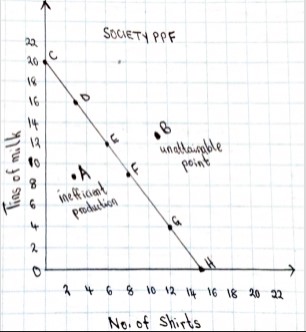 SOCIETY PPF
22
20
18
16
14
12
10
8
6
4
2
0
C
D
E
F
G
H
B
unattainable
point
A
inefficient
production
Tins of milk
2 4 6 8 10 12 14 16 18 20 22
No. of Shirts